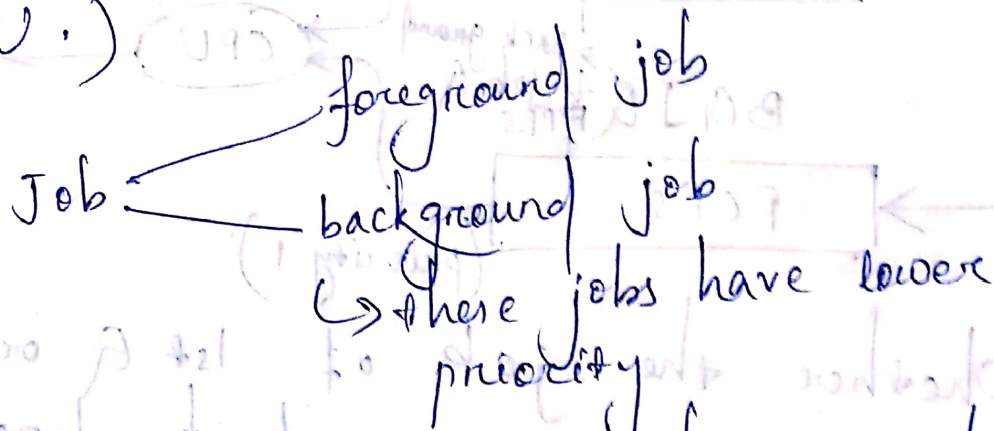 foreground job
Job
background job
↳ these jobs have lower
priority